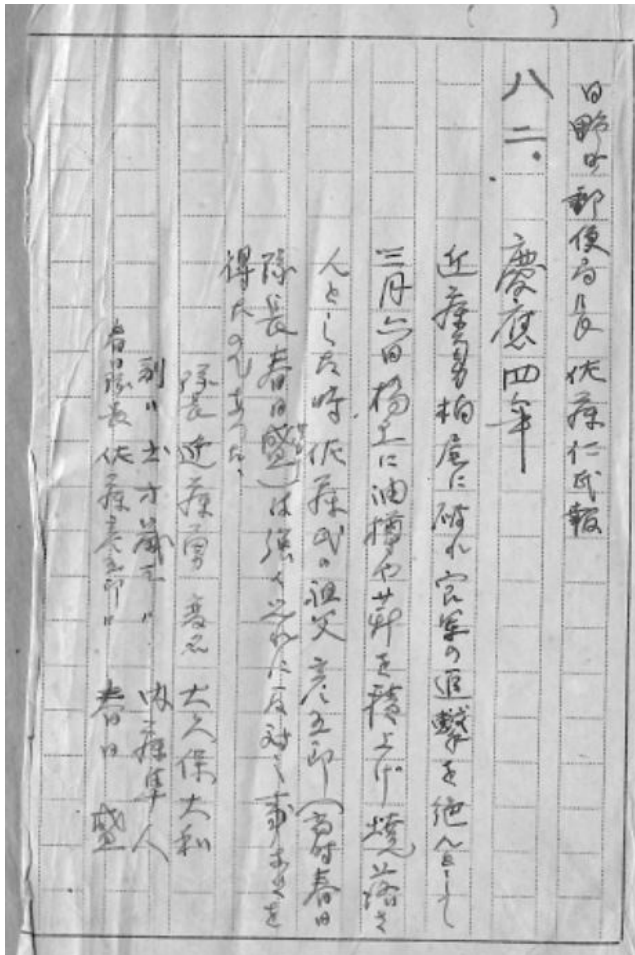 日野町郵便局長佐藤仁氏報
八二．慶應四年
近藤勇柏尾に破れ官軍の追撃を絶んとし
三月六日橋上に油樽や薪を積上げ焼落さ
んとした時佐藤氏の祖父彦五郎（当時春日
隊長春日盛）は強く之れに反対し事なきを
得たのであった、
隊長 近藤勇 変名 大久保大和
副〃 土方歳三〃 内藤隼人
春日隊長 佐藤彦五郎〃 春日盛